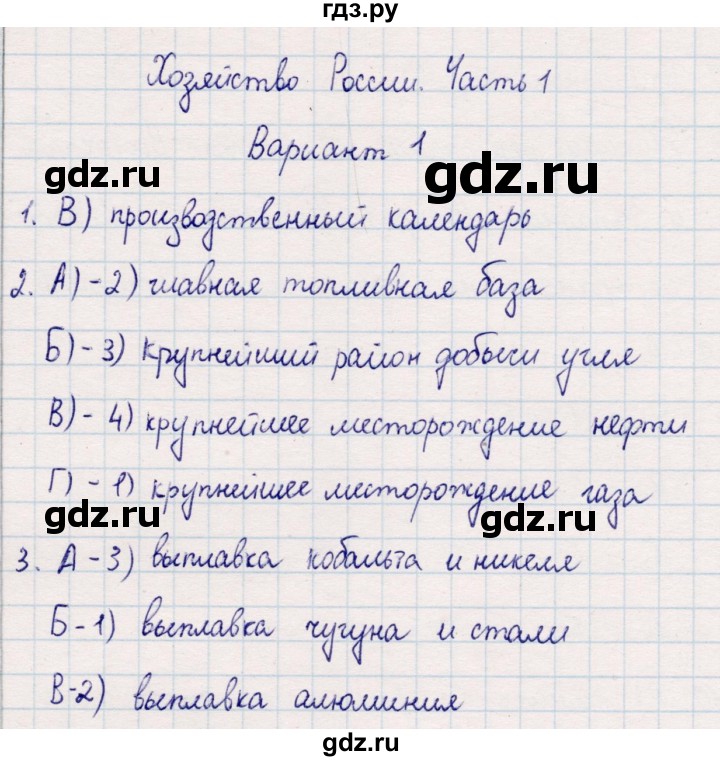 гдз.ру
Хозяйство России. Часть 1
Вариант 1
gdz.ru
gdz.ru
1. В) производственный календарь
2. А) - 2) главная топливная база
Б) - 3) крупнейший район добычи угля
В) - 4) крупнейшее месторождение нефти
Г) - 1) крупнейшее месторождение газа
gdz.ru
gdz.ru
3. А - 3) выплавка кобальта и никеля
Б - 1) выплавка чугуна и стали
В - 2) выплавка алюминия
gdz.ru